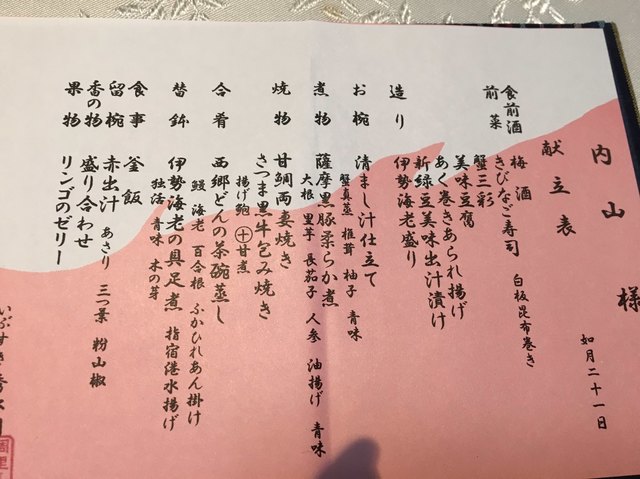 内山 様
献立表
如月二十一日
食前酒 梅酒
前菜 きびなご寿司 白板昆布巻き
蟹三彩
美味豆腐
あく巻きあられ揚げ
新緑豆美味出汁漬け
造り 伊勢海老盛り
お椀 清まし汁仕立て
蟹真蒸 椎茸 柚子 青味
煮物 薩摩黒豚柔らか煮
大根 里芋 長茄子 人参 油揚げ 青味
焼物 甘鯛両妻焼き
さつま黒牛包み焼き
揚げ鮑 ㊉甘煮
合肴 西郷どんの茶碗蒸し
鰻 海老 百合根 ふかひれあん掛け
替鉢 伊勢海老の具足煮 指宿港水揚げ
独活 青味 木の芽
食事 釜飯
留椀 赤出汁 あさり 三つ葉 粉山椒
香の物 盛り合わせ
果物 リンゴのゼリー
いぶすき秀水園
調理